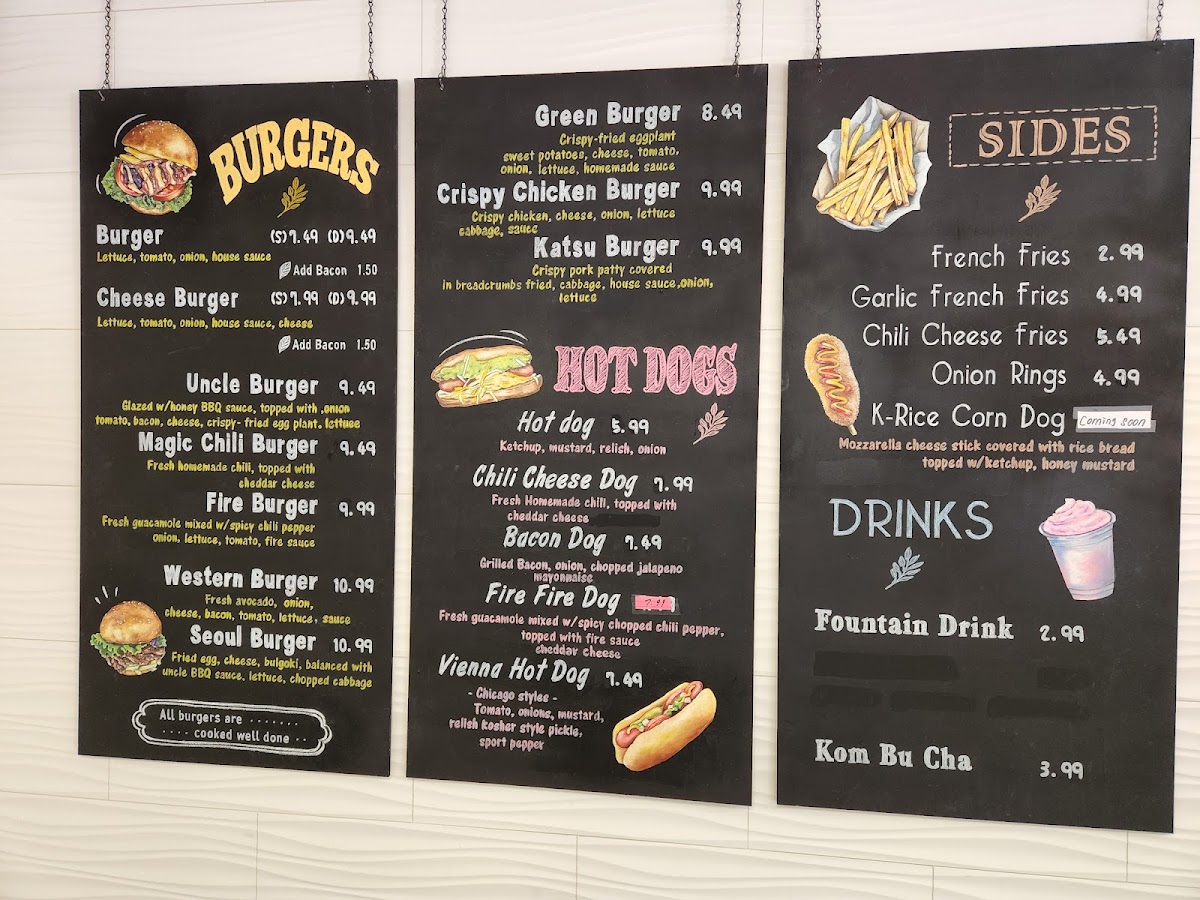 BURGERS
Burger (S) 7.49 (D) 9.49
Lettuce, tomato, onion, house sauce
Add Bacon 1.50
Cheese Burger (S) 7.99 (D) 9.99
Lettuce, tomato, onion, house sauce, cheese
Add Bacon 1.50
Uncle Burger 9.49
Glazed w/honey BBQ sauce, topped with .onion
tomato, bacon, cheese, crispy-fried egg plant, lettuce
Magic Chili Burger 9.49
Fresh homemade chili, topped with
cheddar cheese
Fire Burger 9.99
Fresh guacamole mixed w/spicy chili pepper
onion, lettuce, tomato, fire sauce
Western Burger 10.99
Fresh avocado, onion,
cheese, bacon, tomato, lettuce, sauce
Seoul Burger 10.99
Fried egg, cheese, bulgoki, balanced with
uncle BBQ sauce, lettuce, chopped cabbage
All burgers are .......
.... cooked well done ..
Green Burger 8.49
Crispy-fried eggplant
sweet potatoes, cheese, tomato,
onion, lettuce, homemade sauce
Crispy Chicken Burger 9.99
Crispy chicken, cheese, onion, lettuce
cabbage, sauce
Katsu Burger 9.99
Crispy pork patty covered
in breadcrumbs fried, cabbage, house sauce,onion,
lettuce
HOT DOGS
Hot dog 5.99
Ketchup, mustard, relish, onion
Chili Cheese Dog 7.99
Fresh Homemade chili, topped with
cheddar cheese
Bacon Dog 7.49
Grilled Bacon, onion, chopped jalapeno
mayonnaise
Fire Fire Dog
Fresh guacamole mixed w/spicy chopped chili pepper,
topped with fire sauce
cheddar cheese
Vienna Hot Dog 7.49
- Chicago styles -
Tomato, onions, mustard,
relish kosher style pickle,
sport pepper
SIDES
French Fries 2.99
Garlic French Fries 4.99
Chili Cheese Fries 5.49
Onion Rings 4.99
K-Rice Corn Dog Coming soon
Mozzarella cheese stick covered with rice bread
topped w/ketchup, honey mustard
DRINKS
Fountain Drink 2.99
Kom Bu Cha 3.99